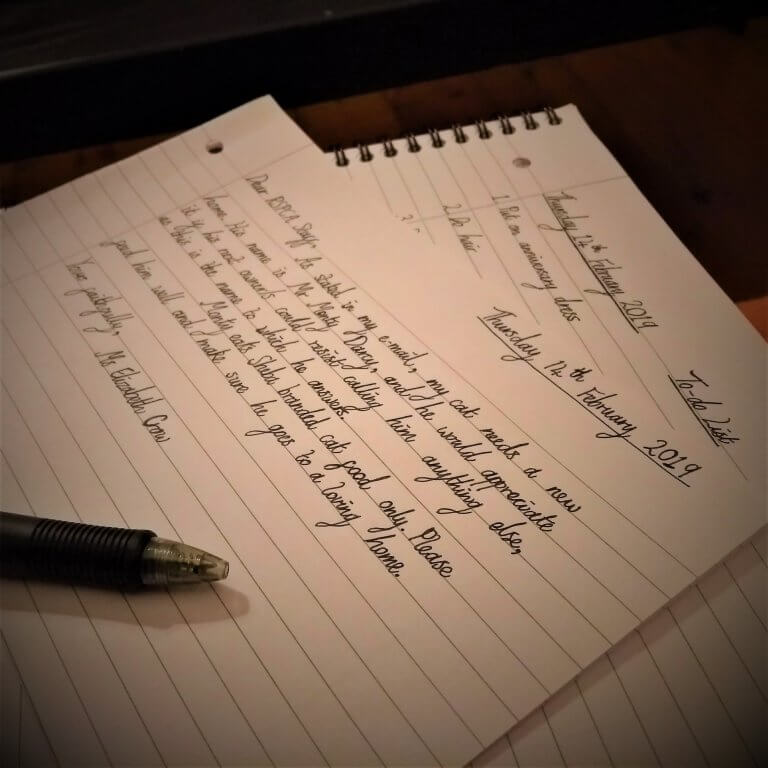 To-do List
Thursday 14th February 2019
1. Put on anniversary dress
2. Do hair
3.
Thursday 14th February 2019
Dear RSPCA Staff, As stated in my e-mail, my cat needs a new
home. His name is Mr Monty Darcy, and he would appreciate
it if his next owners could resist calling him anything else,
as this is the name to which he answers.
Monty eats Sheba branded cat food only. Please
feed him well and make sure he goes to a loving home.
Yours faithfully, Ms Elizabeth Crow